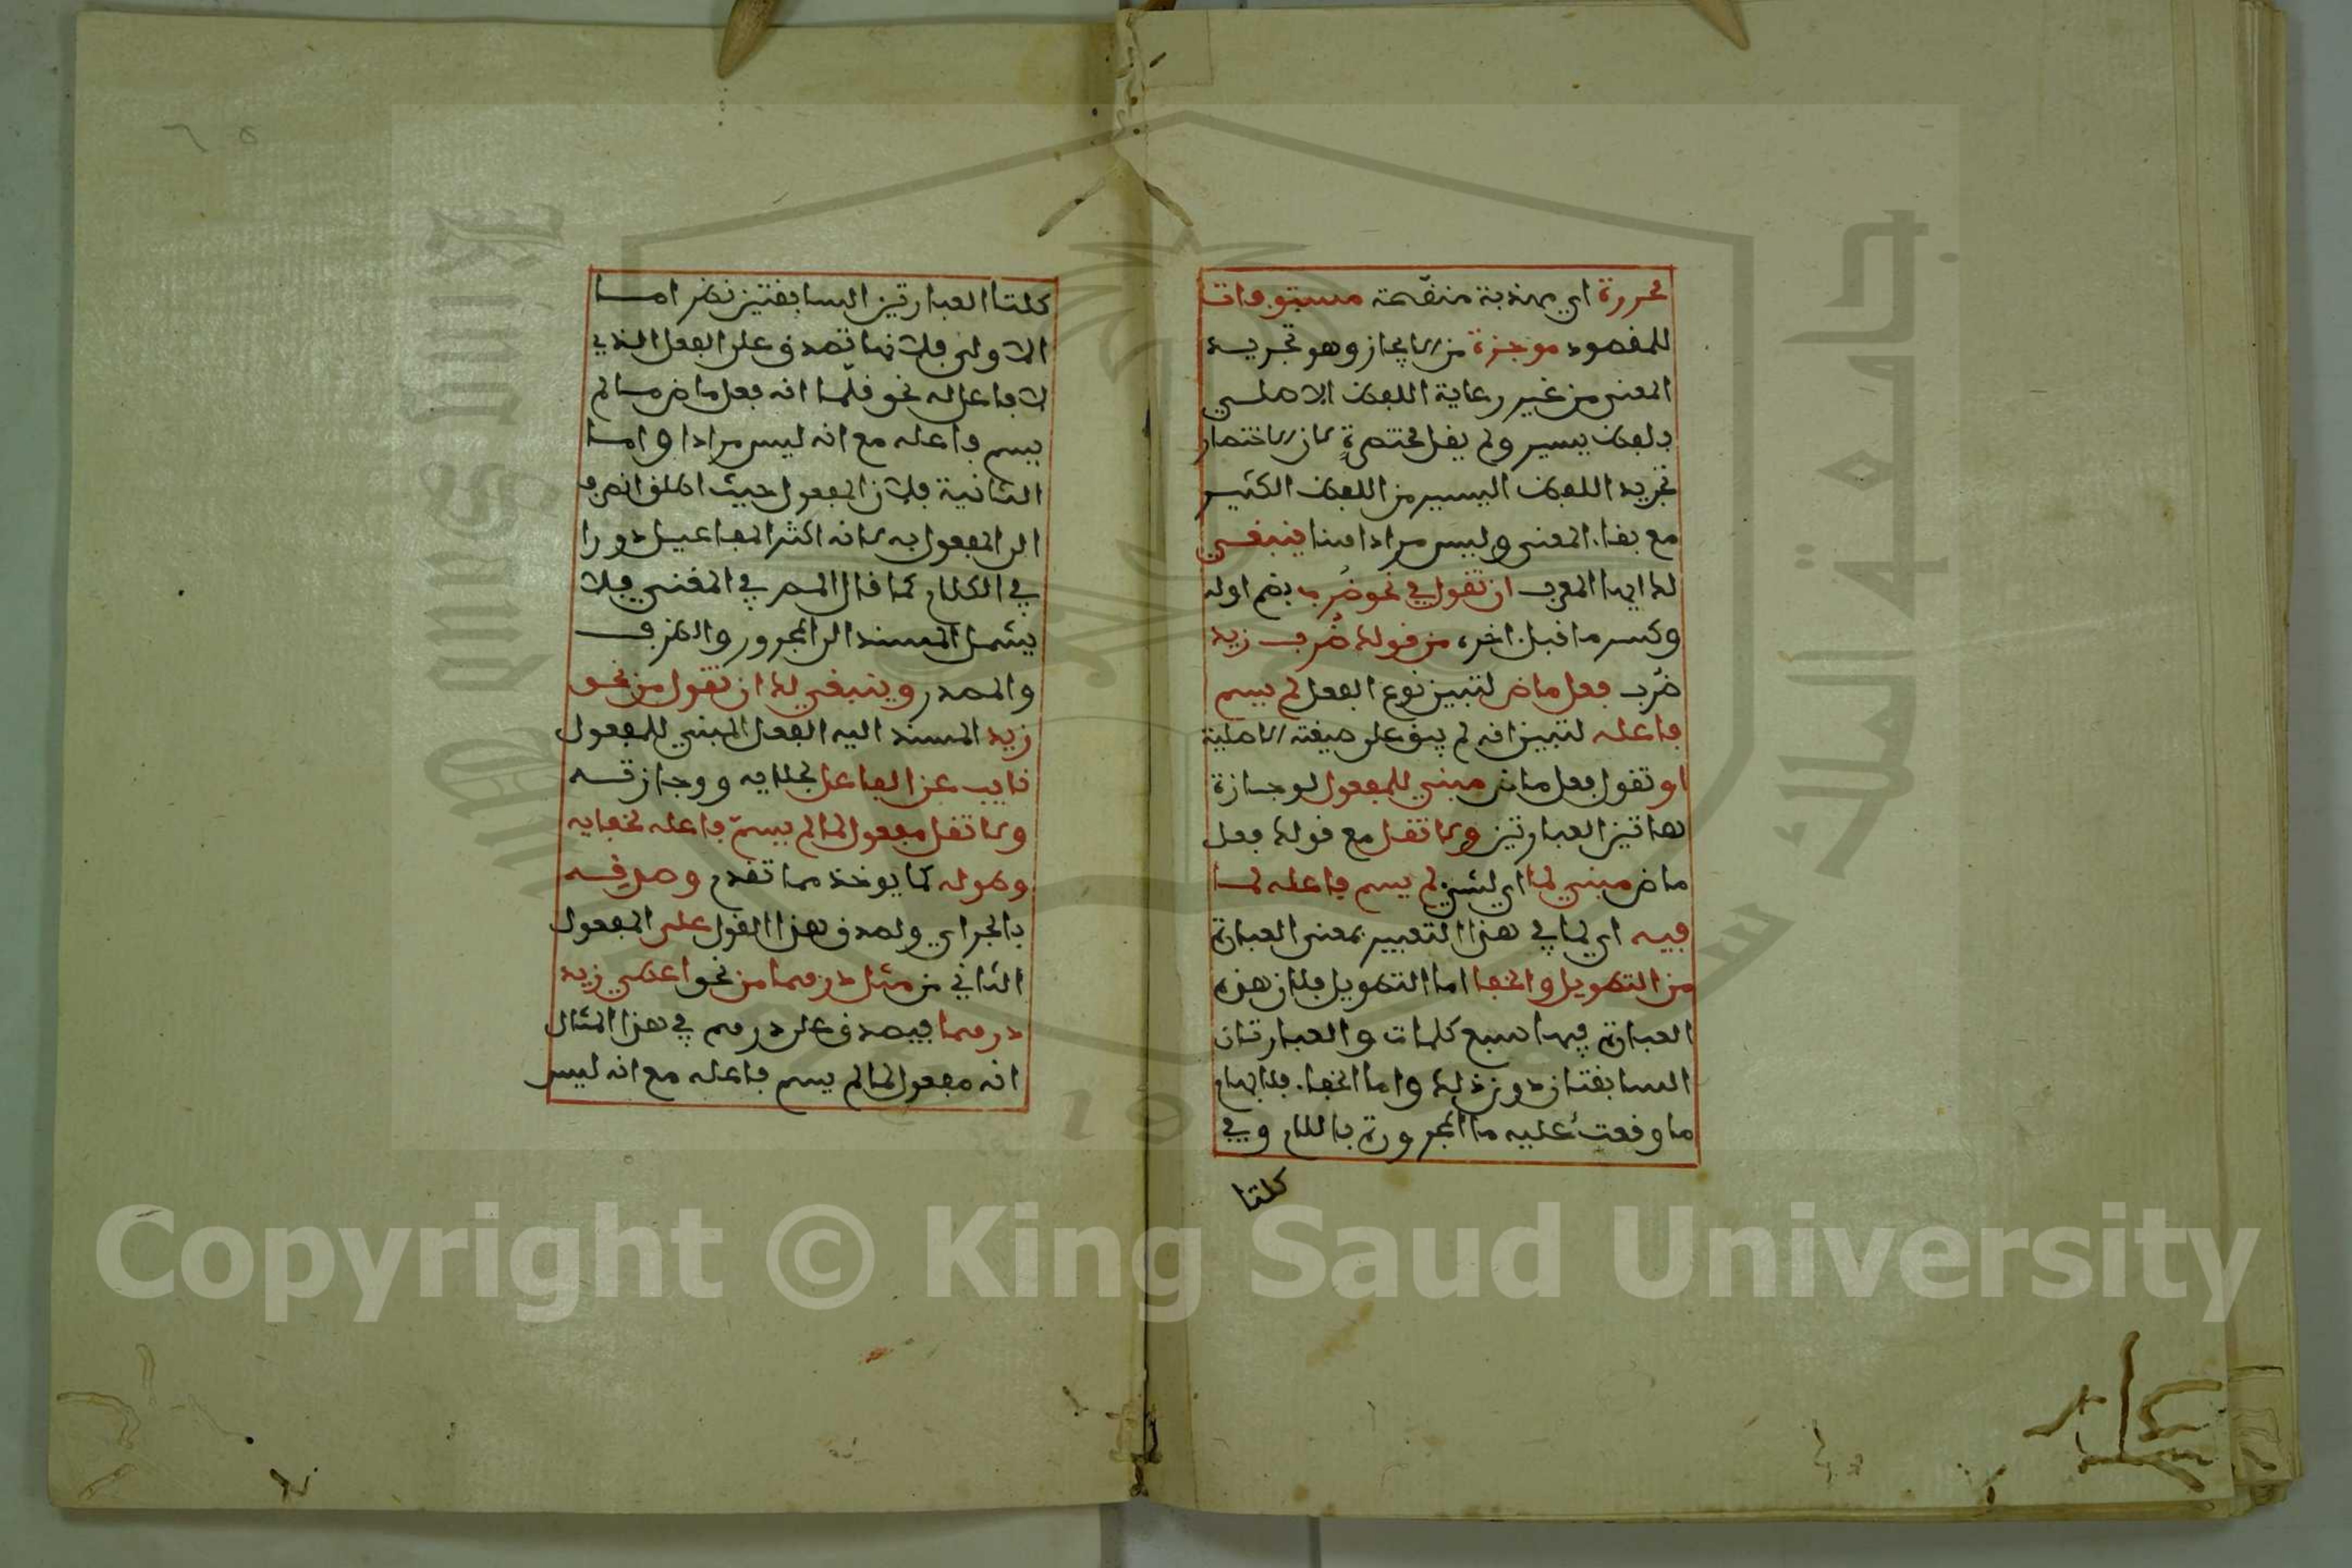 محررة اي مهذبة منقحة مستوفات
للمقصود موجزة من الايجاز وهو تجريد
المعنى من غير رعاية اللفظ الاصلي
بلفظ يسير ولم يقل مختصرة لان الاختصار
تجريد اللفظ اليسير من اللفظ الكثير
مع بقاء المعنى وليس مرادا هنا ينبغي
لك ايها المعرب ان تقول في نحو ضُرب بضم اوله
وكسر ما قبل اخره من قولك ضُرب زيد
ضُرب فعل ماض لتبيين نوع الفعل لم يسم
فاعله لتبيين انه لم يبق على صيغته الاصلية
او تقول فعل ماض مبني للمفعول لوجازة
هاتين العبارتين ولا تقل مع قولك فعل
ماض مبني لما اي لشيء لم يسم فاعله لما
فيه اي لما في هذا التعبير بمعنى العبارة
من التطويل والخفا اما التطويل فلان هذه
العبارة فيها سبع كلمات والعبارتان
السابقتان دون ذلك واما الخفاء فلابهام
ما وقعت عليه ما المجرورة باللام وفي
كلتا
كلتا العبارتين السابقتين نظر اما
الاولى فلانها تصدق على الفعل الذي
لا فاعل له نحو قلّما انه فعل ماض مسالم
يسم فاعله مع انه ليس مرادا واما
الثانية فلان المفعول حيث اطلق انصرف
الى المفعول به لانه اكثر المفاعيل دورا
في الكلام كما قال المص في المغني فلا
يشمل المسند الى المجرور والظرف
والمصدر وينبغي لك ان تقول من نحو
زيد المسند اليه الفعل المبني للمفعول
نايب عن الفاعل لجلايه ووجازته
ولا تقل مفعول لما لم يسمّ فاعله لخفايه
وطوله كما يوخذ مما تقدم وصدقه
بالجر اي ولصدق هذا القول على المفعول
الثاني من مثل درهما من نحو اعطي زيد
درهما فيصدق على درهم في هذا المثال
انه مفعول لما لم يسم فاعله مع انه ليس
Copyright © King Saud University